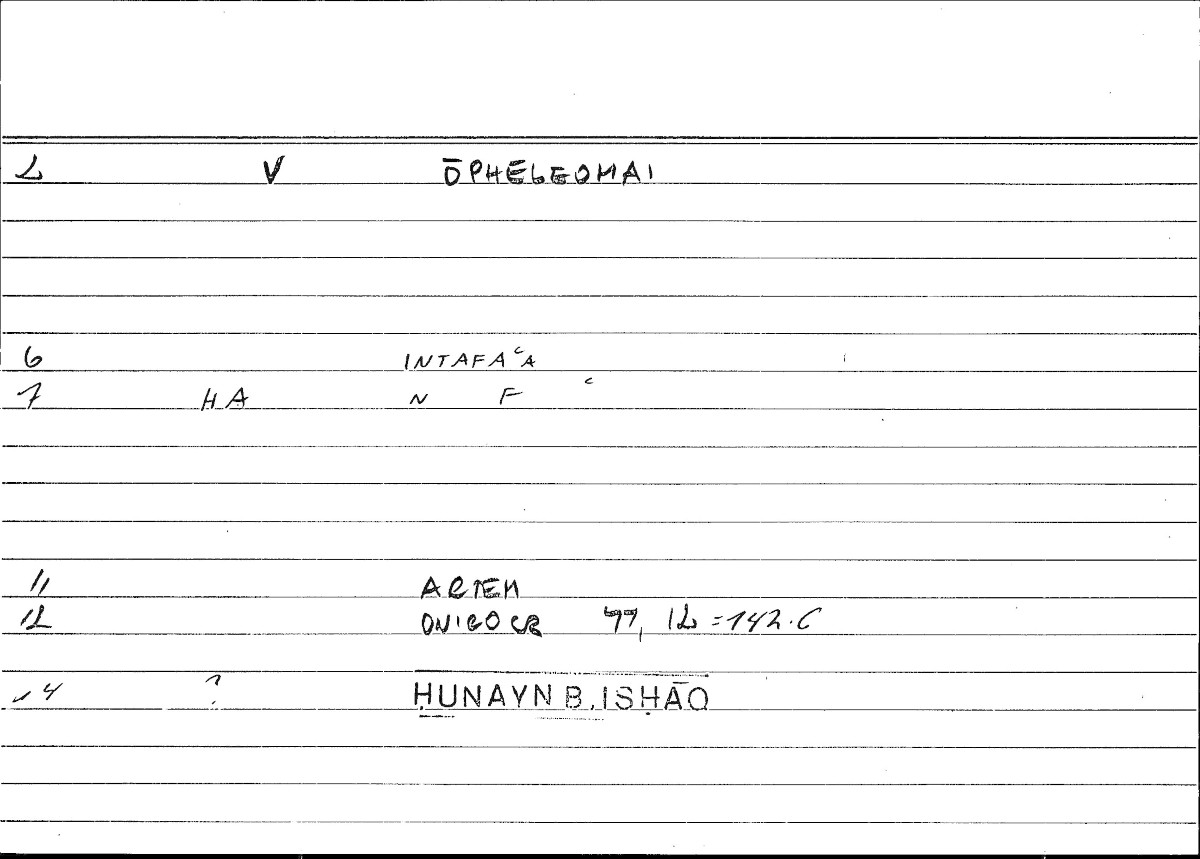 2 V ŌPHELEOMAI
6 INTAFAʿA
7 HA N F ʿ
11 ARTEM
12 ONIROCR 77, 12 = 142.6
14 ? ḤUNAYN B. ISḤĀQ